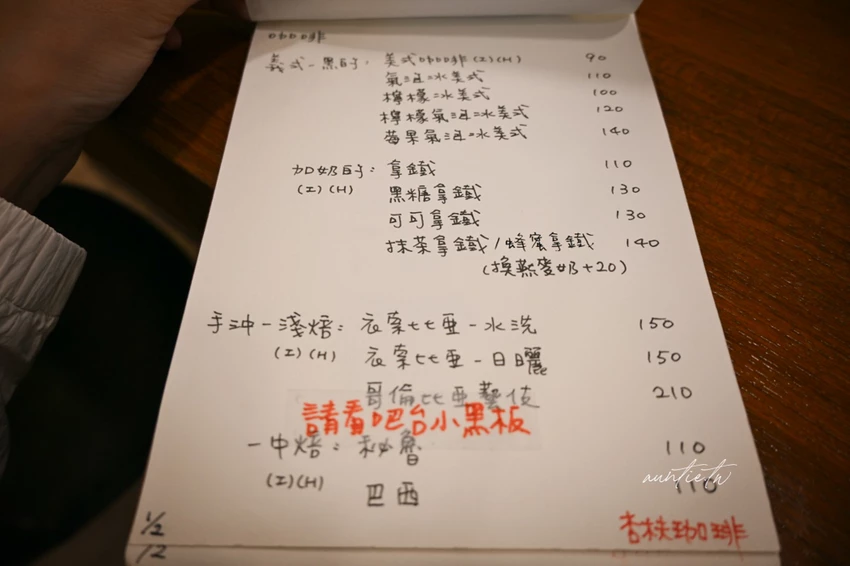 咖啡
義式-黑的: 美式咖啡(I)(H) 90
氣泡冰美式 110
檸檬冰美式 100
檸檬氣泡冰美式 120
莓果氣泡冰美式 140
加奶的: 拿鐵 110
(I)(H) 黑糖拿鐵 130
可可拿鐵 130
抹茶拿鐵/蜂蜜拿鐵 140
(換燕麥奶+20)
手沖-淺焙: 衣索比亞-水洗 150
(I)(H) 衣索比亞-日曬 150
哥倫比亞藝伎 210
請看吧台小黑板
-中焙: 秘魯 110
(I)(H) 巴西 110
auntie.tw
珈琲
1/2
/2